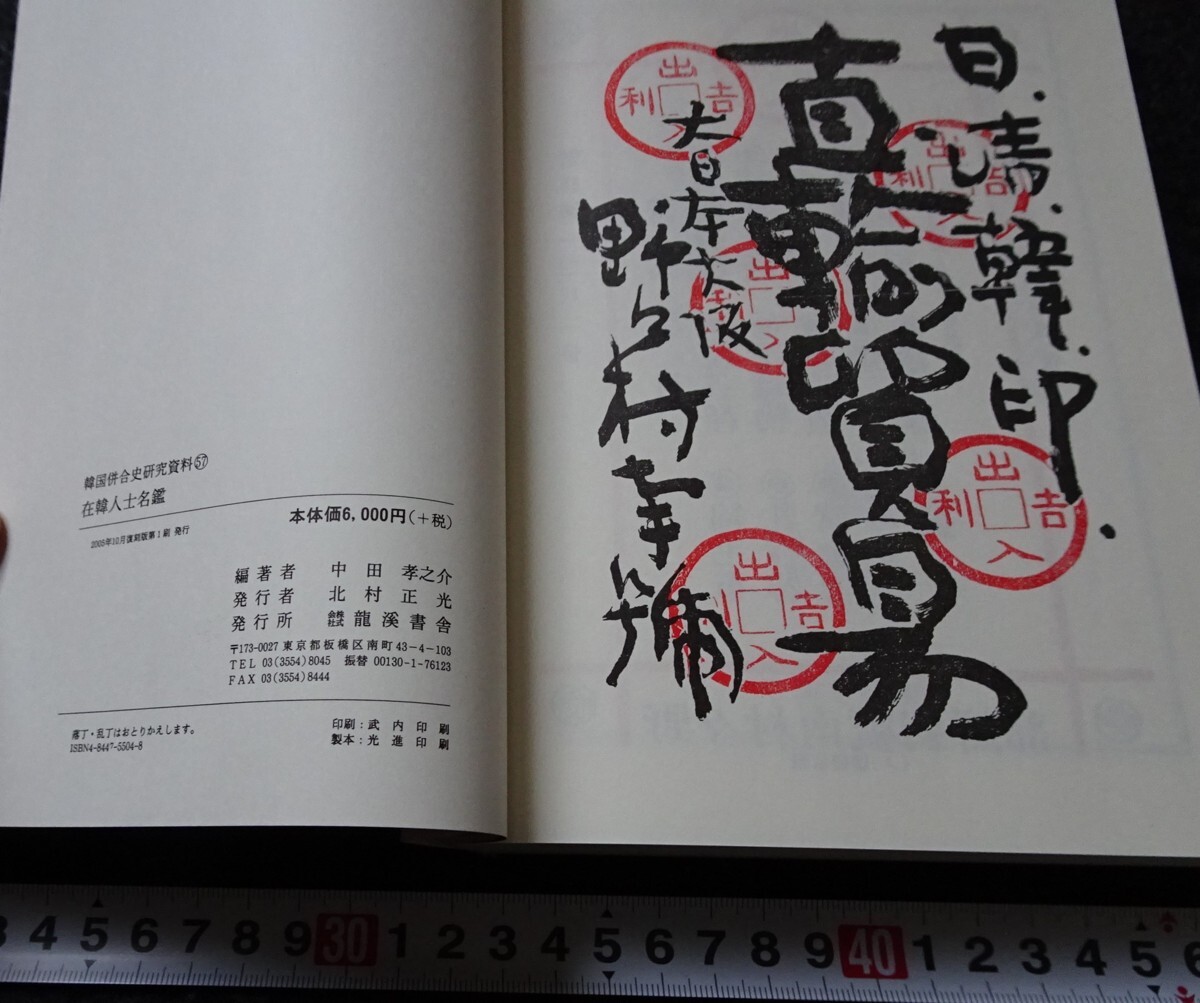 日.清.韓.印.
直輸貿易
大日本大阪
野々村幸彌
出
利 吉
入
出
利 吉
入
出
利
出
利 吉
入
出
利 吉
入
韓国併合史研究資料㊼
在韓人士名鑑
2005年10月復刻版第1刷 発行
本体価6,000円(+税)
編著者 中田 孝之介
発行者 北村 正光
発行所 株式会社 龍溪書舎
〒173-0027 東京都板橋区南町43-4-103
TEL 03(3554)8045 振替 00130-1-76123
FAX 03(3554)8444
落丁・乱丁はおとりかえします。
ISBN4-8447-5504-8
印刷:武内印刷
製本:光進印刷
3 4 5 6 7 8 9 30 1 2 3 4 5 6 7 8 9 40 1 2 3 4 5 6